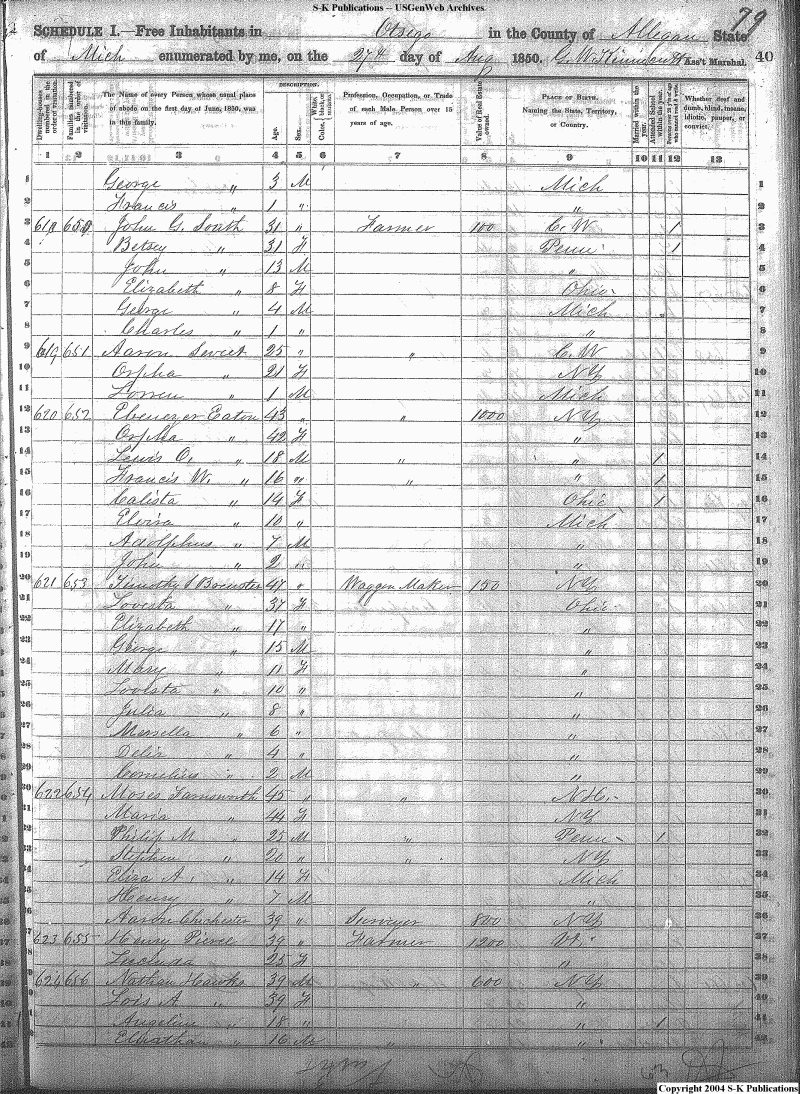 S-K Publications -- USGenWeb Archives
79
SCHEDULE I.—Free Inhabitants in Otsego in the County of Allegan State
of Mich enumerated by me, on the 27th day of Aug 1850. Ass't Marshal. 40
Dwelling-houses numbered in the order of visitation. Families numbered in the order of visitation. The Name of every Person whose usual place of abode on the first day of June, 1850, was in this family. DESCRIPTION. Age. Sex. Color, Profession, Occupation, or Trade of each Male Person over 15 years of age. Value of Real Estate owned. PLACE OF BIRTH. Naming the State, Territory, or Country. Married within the year. Attended School within the year. Persons over 20 y'rs of age who cannot read & write. Whether deaf and dumb, blind, insane, idiotic, pauper, or convict.
1 2 3 4 5 6 7 8 9 10 11 12 13
1 George " 3 M Mich 1
2 Francis " 1 " " 2
3 John G. South 31 " Farmer 100 C. W 1 3
4 Betsey " 31 F Penn 1 4
5 John " 13 M " 5
6 Elizabeth " 8 F Ohio 6
7 George " 4 M Mich 7
8 Charles " 1 " " 8
9 619 651 Aaron Sweet 25 " " C. W 9
10 Orpha " 21 F NY 10
11 Lorren " 1 M Mich 11
12 620 652 Ebenezer Eaton 43 " " 1000 NY 12
13 Orpha " 42 F " 13
14 Lewis O. " 18 M " " 1 14
15 Francis W. " 16 " " " 1 15
16 Calista " 14 F Ohio 1 16
17 Elvira " 10 " Mich 17
18 Adolphus " 7 M " 18
19 John " 2 " " 19
20 621 653 Timothy 47 " Waggon Maker 150 NY 20
21 Lovesta " 37 F Ohio 21
22 Elizabeth " 17 " " 22
23 George " 15 M " 23
24 Mary " 11 F " 24
25 Lovista " 10 " " 25
26 Julia " 8 " " 26
27 Mersella " 6 " " 27
28 Delia " 4 " " 28
29 Cornelius " 2 M " 29
30 622 654 Moses Farnsworth 45 " " N H. 30
31 Maria " 44 F NY 31
32 Philip M " 25 M " Penn 1 32
33 Stephen " 20 " " NY 33
34 Eliza A. " 14 F Mich 34
35 Henry " 7 M " 35
36 Aaron Chichester 39 " Surveyor 800 NY 36
37 623 655 Henry Pierce 39 " Farmer 1200 Vt. 37
38 Lucinda " 25 F " 38
39 624 656 Nathan Hawks 39 M " 600 NY 39
40 Lois A " 39 F " 40
41 Angeline " 18 " " 1 41
42 Elnathan " 16 M " " 42
Copyright 2004 S-K Publications